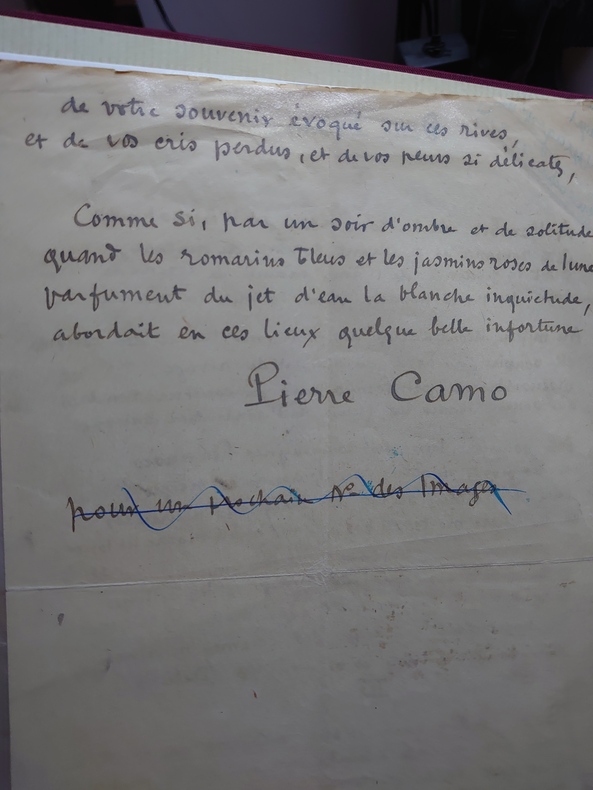 de votre souvenir évoqué sur ces rives,
et de vos cris perdus, et de vos peurs si délicats,
Comme si, par un soir d'ombre et de solitude
quand les romarins bleus et les jasmins roses de lune
parfument du jet d'eau la blanche inquiétude,
abordait en ces lieux quelque belle infortune
Pierre Camo
pour un prochain N° des Images